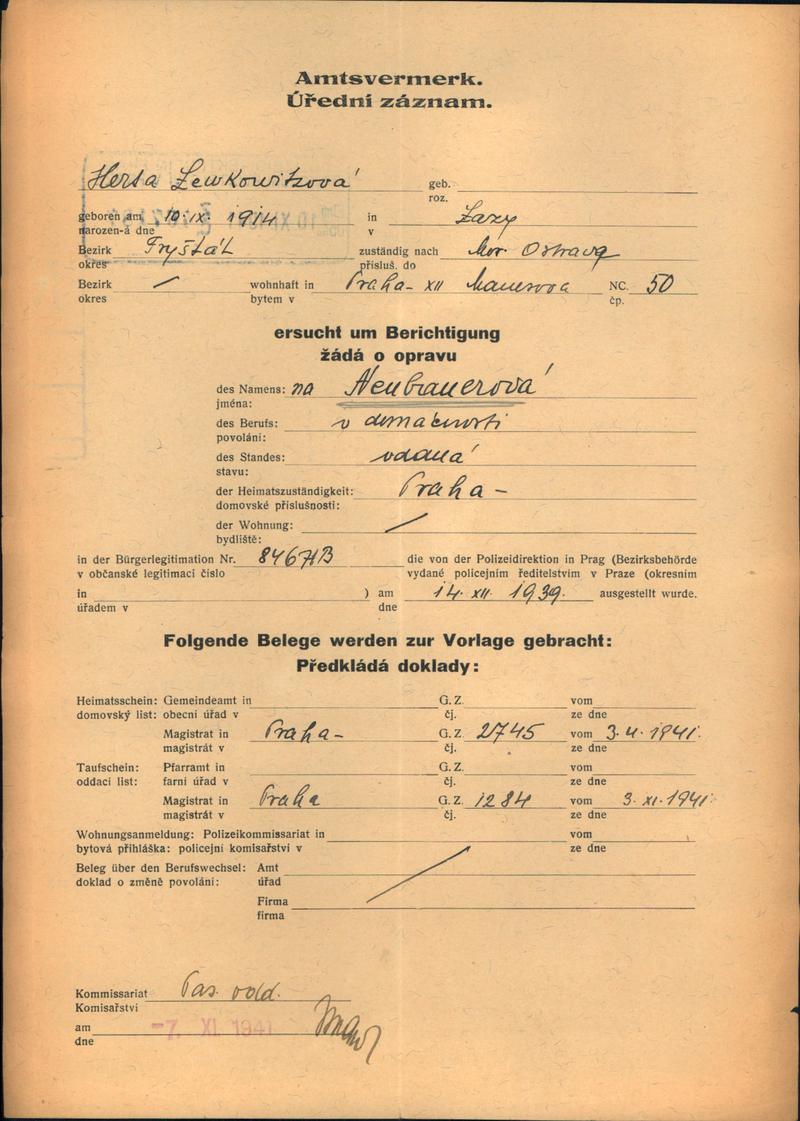 Amtsvermerk.
Úřední záznam.
Herta Lewkowitzová geb.
roz.
geboren am 10. IX. 1914 in Lazy
narozen-á dne v
Bezirk Fryštát zuständig nach Mor. Ostrava
okres přísluš. do
Bezirk / wohnhaft in Praha - XII NC. 50
okres bytem v čp.
ersucht um Berichtigung
žádá o opravu
des Namens: na Neubauerová
jména:
des Berufs: v domácnosti
povolání:
des Standes: vdaná
stavu:
der Heimatszuständigkeit: Praha -
domovské příslušnosti:
der Wohnung: /
bydliště:
in der Bürgerlegitimation Nr. die von der Polizeidirektion in Prag (Bezirksbehörde
v občanské legitimaci číslo vydané policejním ředitelstvím v Praze (okresním
in ) am 14. XII. 1939. ausgestellt wurde.
úřadem v dne
Folgende Belege werden zur Vorlage gebracht:
Předkládá doklady:
Heimatsschein: Gemeindeamt in G. Z. vom
domovský list: obecní úřad v čj. ze dne
Magistrat in Praha - G. Z. 2745 vom 1941.
magistrát v čj. ze dne
Taufschein: Pfarramt in G. Z. vom
oddací list: farní úřad v čj. ze dne
Magistrat in Praha G. Z. 1284 vom 3. XI. 1941.
magistrát v čj. ze dne
Wohnungsanmeldung: Polizeikommissariat in vom
bytová přihláška: policejní komisařství v ze dne
Beleg über den Berufswechsel: Amt
doklad o změně povolání: úřad
Firma
firma
Kommissariat Pas. odd.
Komisařství
am -7. XI. 1941
dne